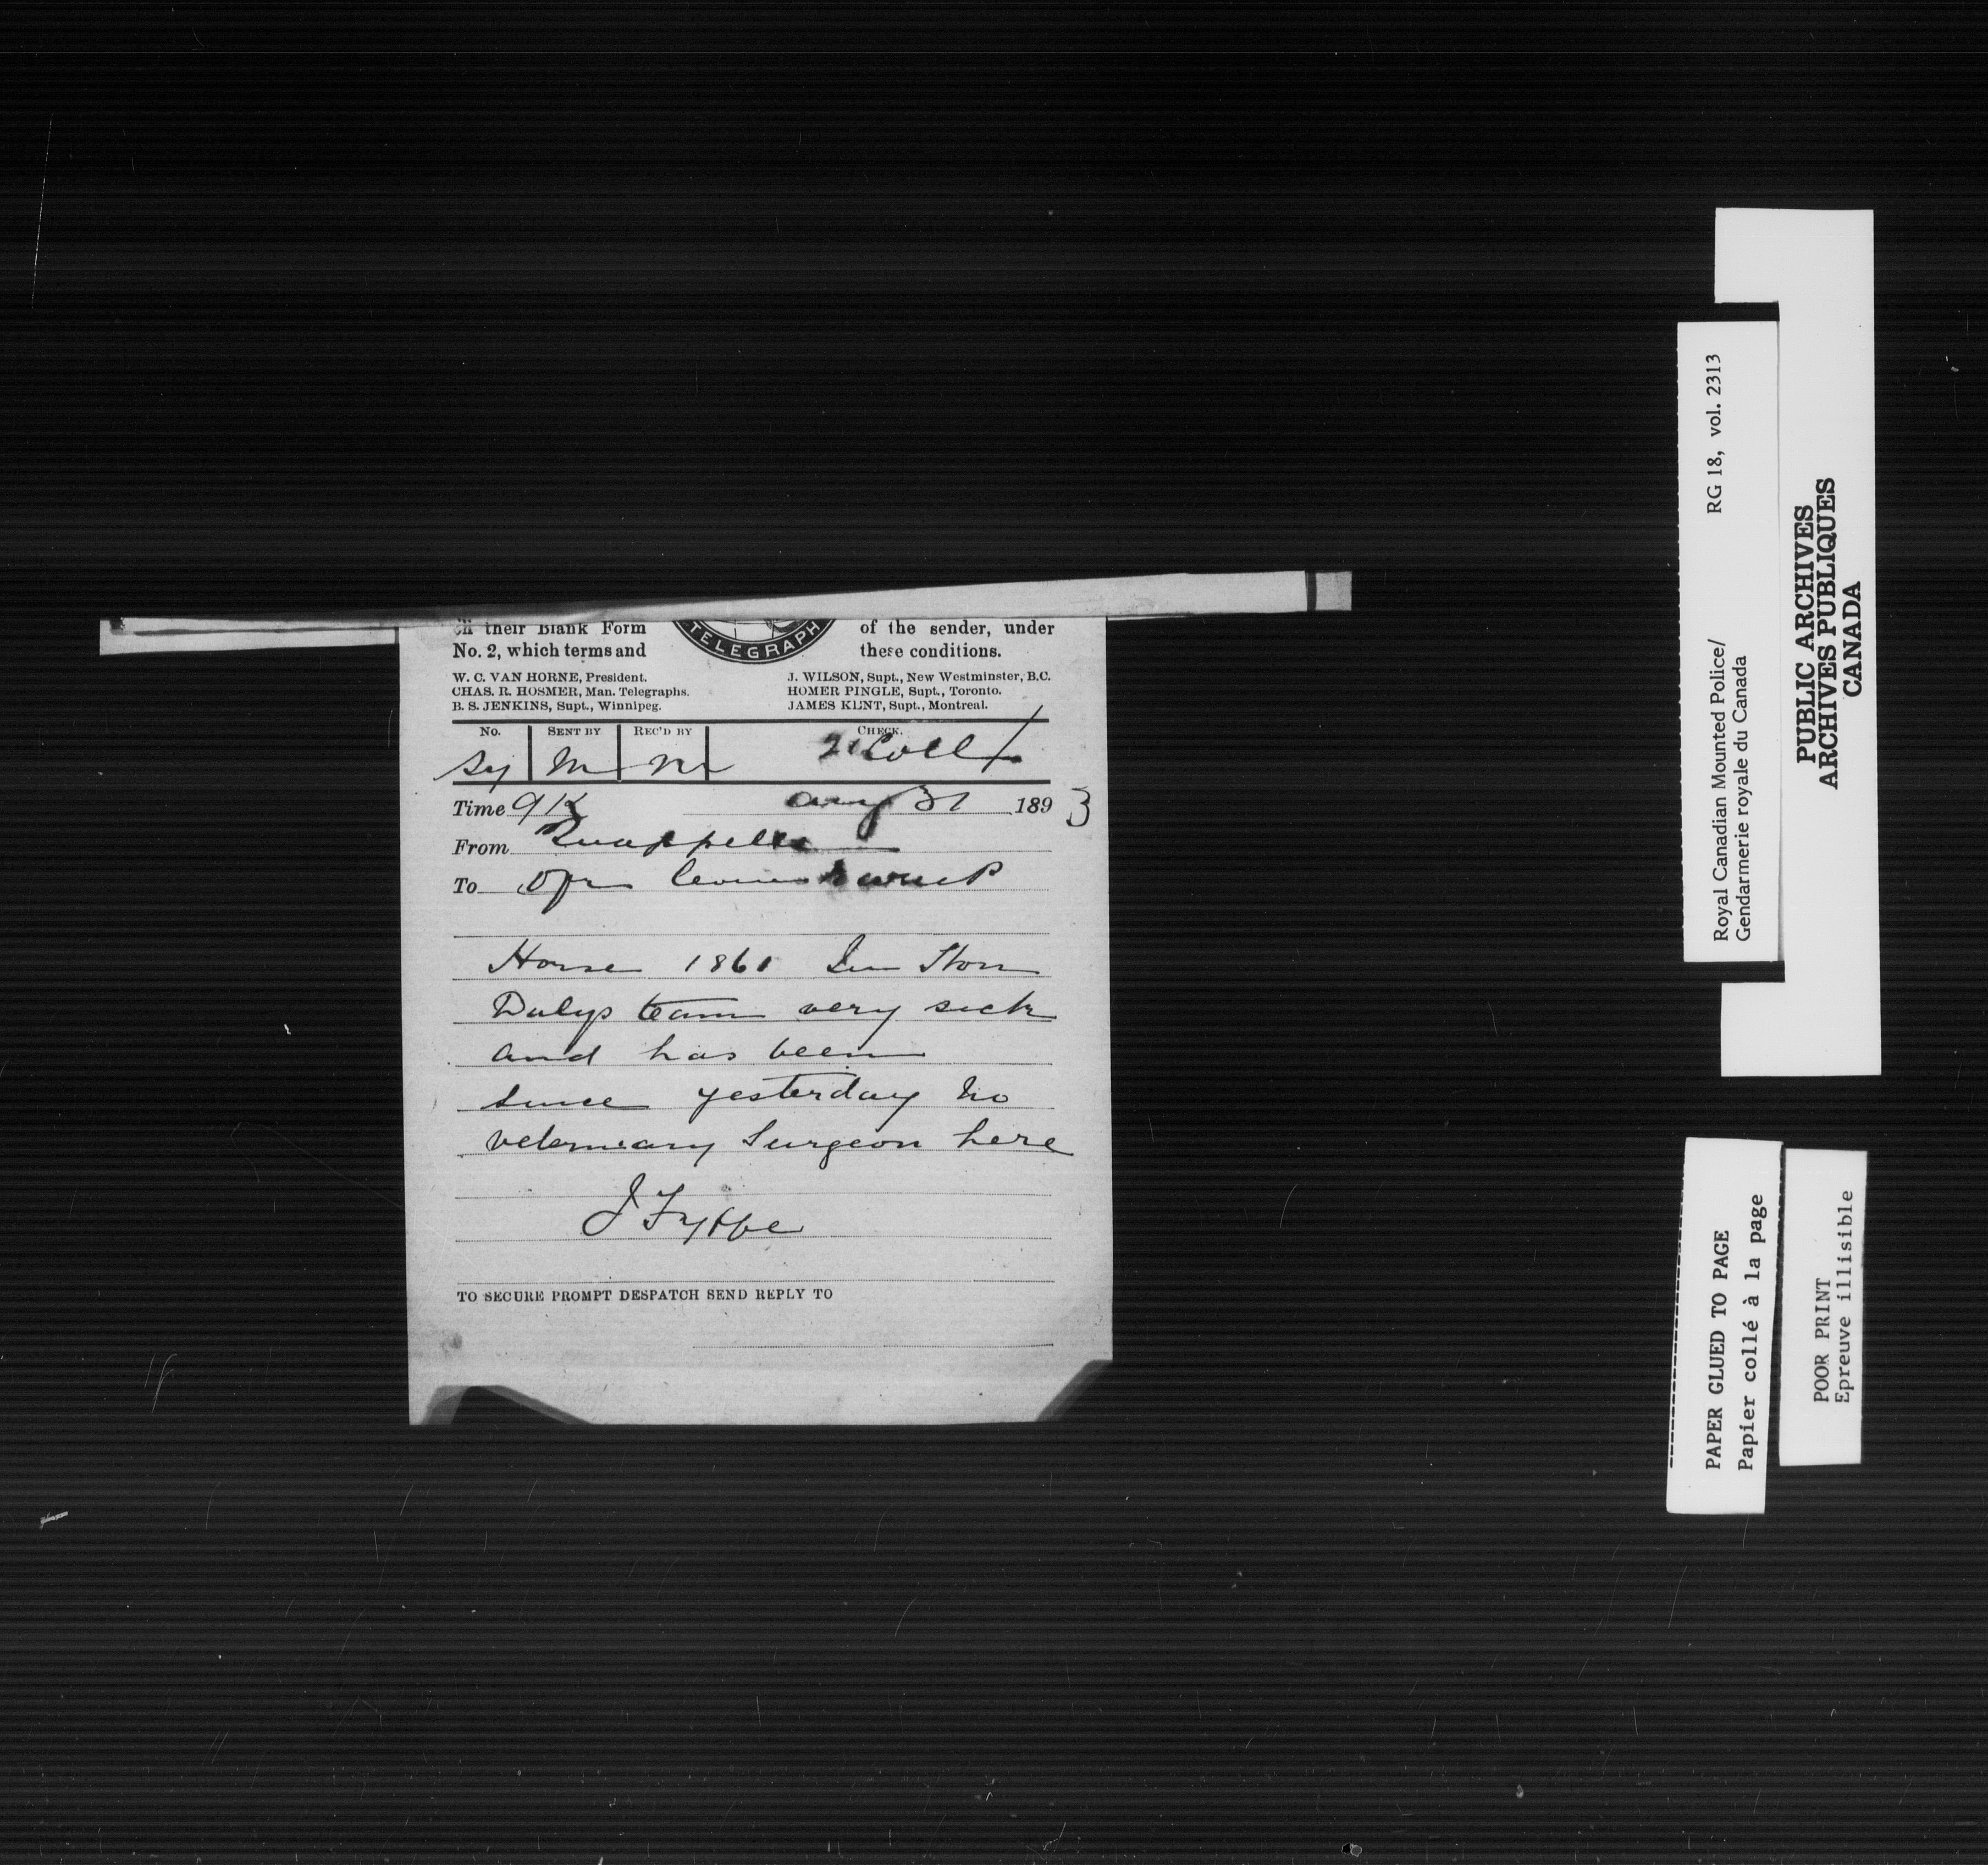 on their Blank Form
No. 2, which terms and
TELEGRAPH
of the sender, under
these conditions.
W. C. VAN HORNE, President.
CHAS. R. HOSMER, Man. Telegraphs.
B. S. JENKINS, Supt., Winnipeg.
J. WILSON, Supt., New Westminster, B.C.
HOMER PINGLE, Supt., Toronto.
JAMES KENT, Supt., Montreal.
No. SENT BY REC'D BY CHECK.
Sy M 21 Collt
Time 9 15 Aug 31 1893
From Quappelle
To
Horse 1861
Dalys team very sick
and has been
since yesterday No
veterniary Surgeon here
J Fyffe
TO SECURE PROMPT DESPATCH SEND REPLY TO
RG 18, vol. 2313
Royal Canadian Mounted Police/
Gendarmerie royale du Canada
PUBLIC ARCHIVES
ARCHIVES PUBLIQUES
CANADA
PAPER GLUED TO PAGE
Papier collé à la page
POOR PRINT
Epreuve illisible